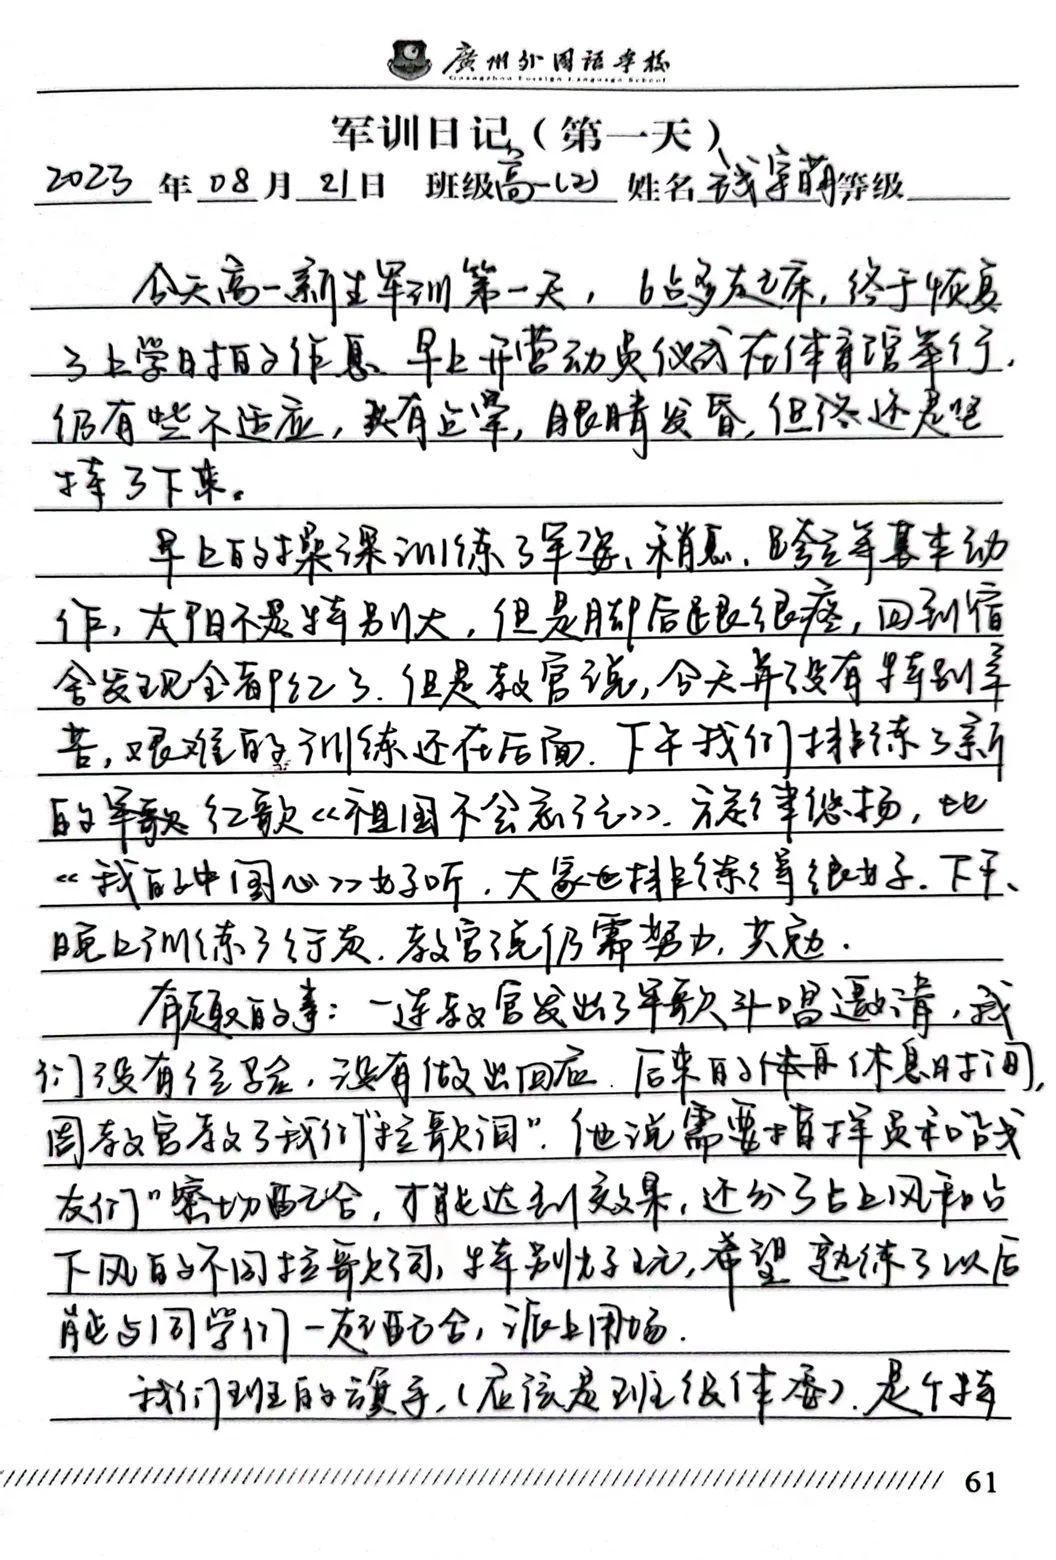 廣州外国語学校
Guangzhou Foreign Language School
军训日记（第一天）
2023年08月21日 班级高一(2) 姓名钱宇萌等级
今天高一新生军训第一天，6点多起床，终于恢复
了上学时期的作息、早上开营动员仪式在体育馆举行.
仍有些不适应，我有点晕，眼睛发昏，但终还是坚
持了下来。
早上的操课训练了军姿、稍息、跨立等基本动
作，太阳不是特别大，但是脚后跟很疼，回到宿
舍发现全都红了.但是教官说，今天并没有特别辛
苦，艰难的训练还在后面.下午我们排练了新
的军歌 红歌《祖国不会忘记》.旋律悠扬，比
《我的中国心》好听.大家也排练得很好.下午、
晚上训练了行走.教官说仍需努力，共勉.
有趣的事：一连教官发出了军歌斗唱邀请，我
们没有经验，没有做出回应.后来的体再休息时间，
周教官教了我们"拉歌词".他说需要指挥员和"战
友们"密切配合，才能达到效果，还分了占上风和占
下风的不同拉歌词，特别好玩，希望熟练了以后
能与同学们一起配合，派上用场.
我们班的旗手，(应该是班级体委).是个特
61